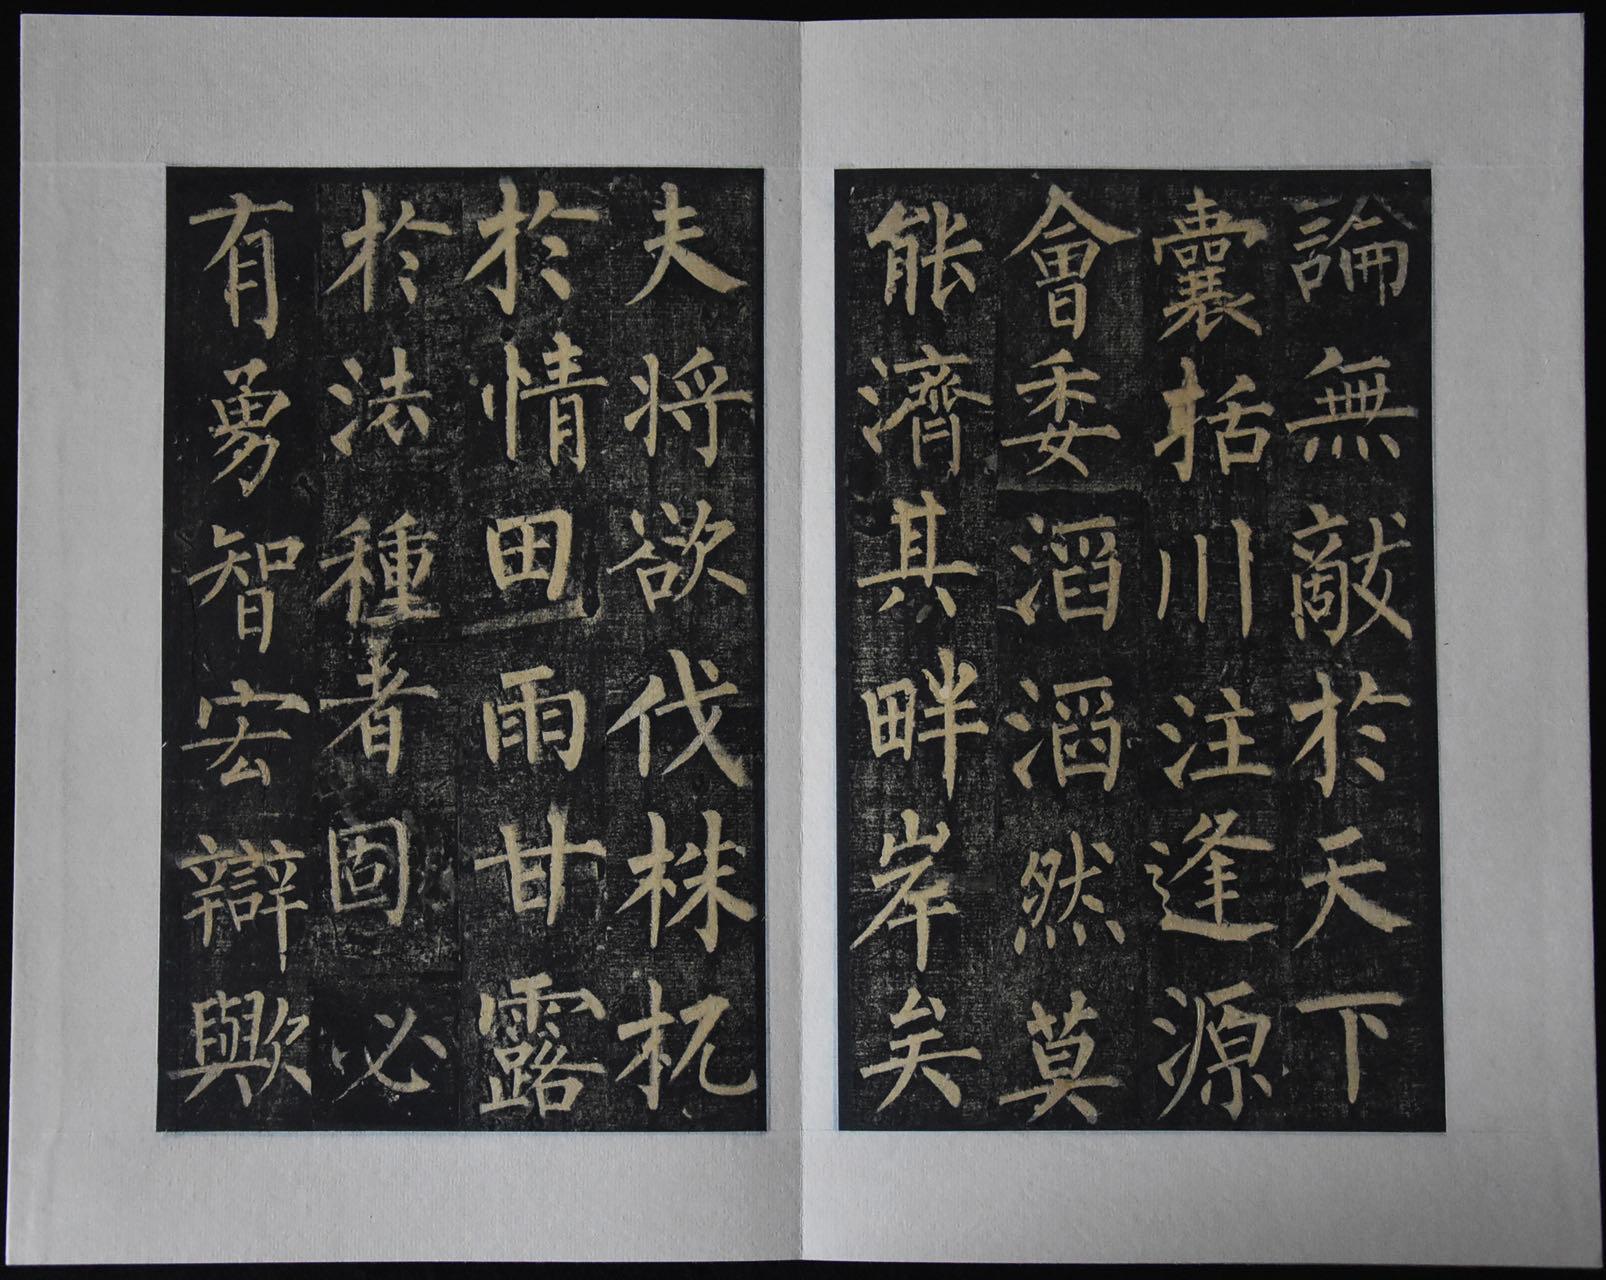 論無敵於天下
囊括川注逢源
會委滔滔然莫
能濟其畔岸矣
夫將欲伐株杌
於情田雨甘露
於法種者固必
有勇智宏辯歟